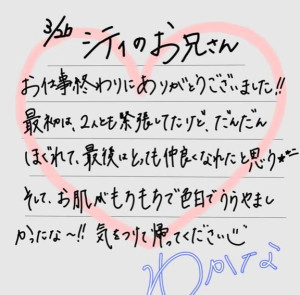 3/26 シティのお兄さん
お仕事終わりにありがとうございました!!
最初は、2人とも緊張してたけど、だんだん
ほぐれて、最後はとっても仲良くなれたと思う
そして、お肌がもちもちで色白でうらやまし
かったな〜!! 気をつけて帰ってください
わかな